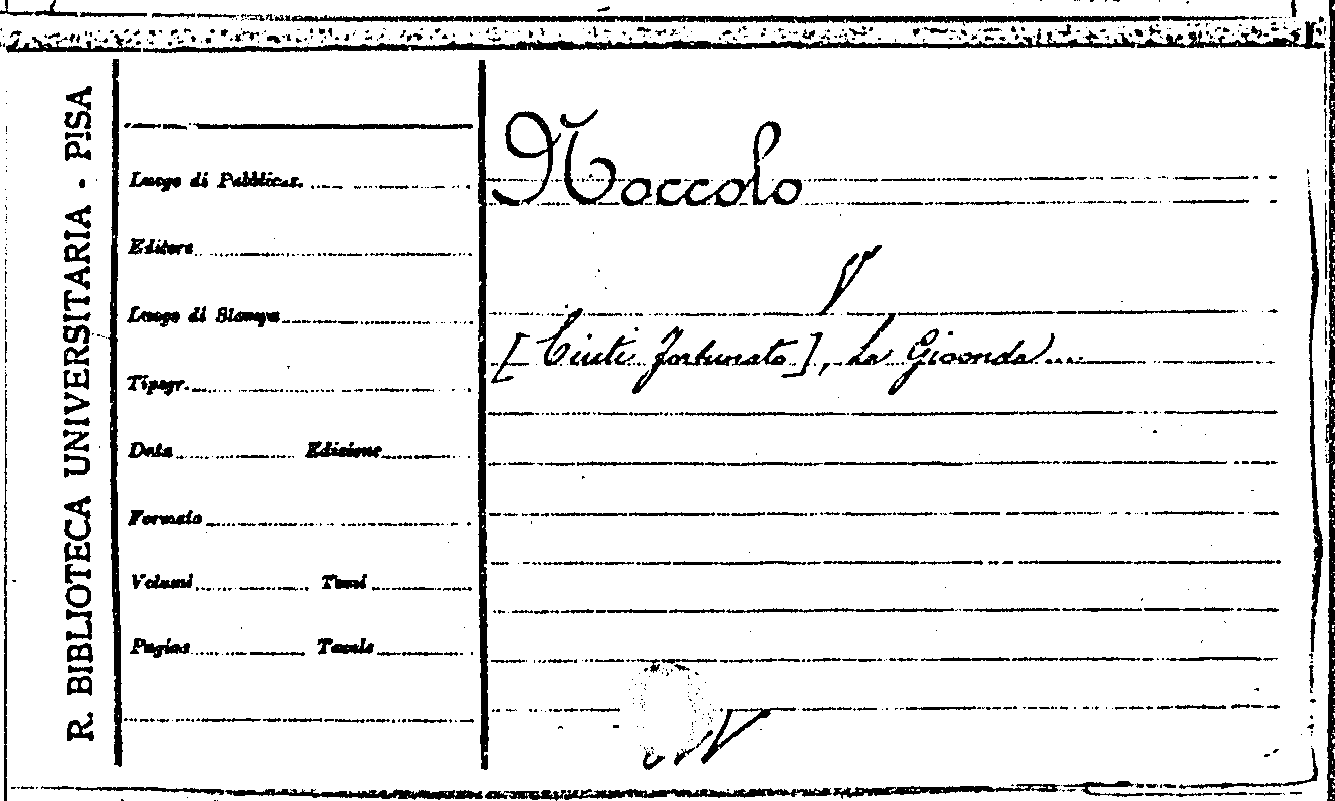 R. BIBLIOTECA UNIVERSITARIA - PISA
Luogo di Pubblicaz.
Editore
Luogo di Stampa
Tipogr.
Data Edizione
Formato
Volumi Tomi
Pagine Tavole
Noccolo
V
[Ciuti Fortunato], La Gioconda....